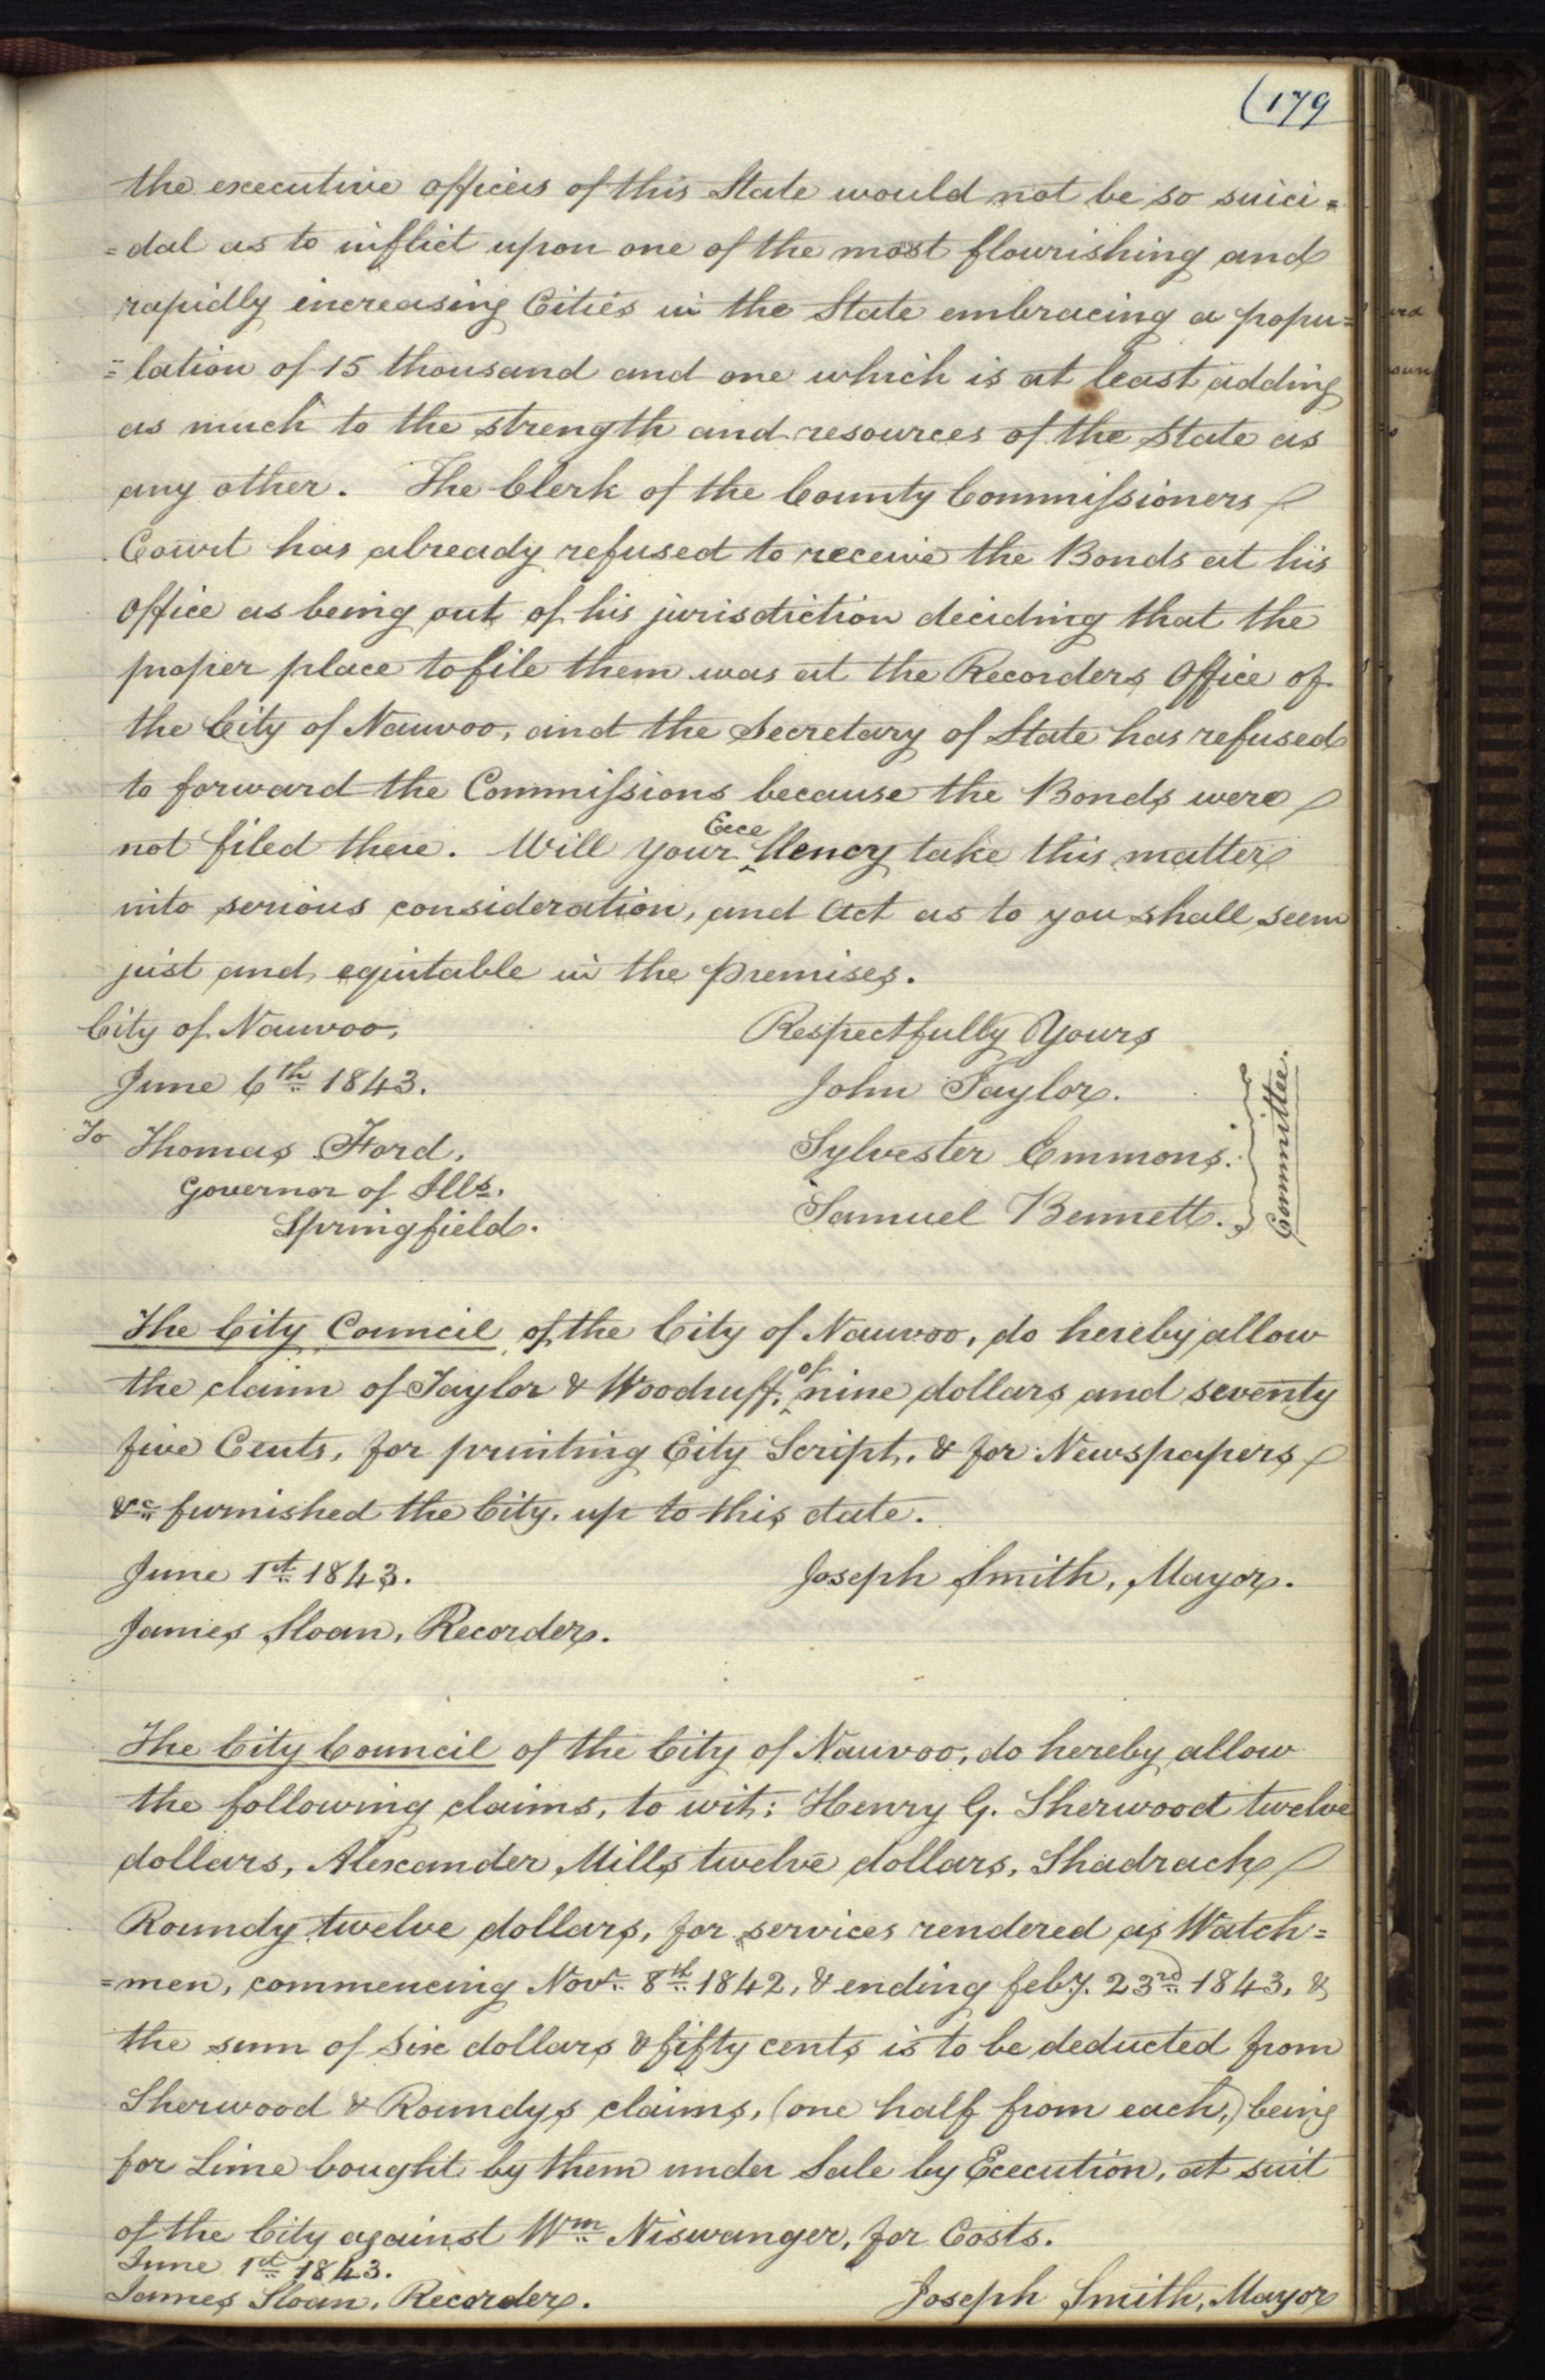 (179
the executive officers of this State would not be so suici=
=dal as to inflict upon one of the most flourishing and
rapidly increasing Cities in the State embracing a popu=
=lation of 15 thousand and one which is at least adding
as much to the strength and resources of the State as
any other. The Clerk of the County Commissioners
Court has already refused to receive the Bonds at his
Office as being out of his jurisdiction deciding that the
proper place to file them was at the Recorders Office of
the City of Nauvoo, and the Secretary of State has refused
to forward the Commissions because the Bonds were
not filed there. Will your Excellency take this matter
into serious consideration, and Act as to you shall seem
just and equitable in the premises.
City of Nauvoo, Respectfully Yours
June 6th 1843. John Taylor.
To Thomas Ford, Sylvester Emmons.
Governor of Ills.
Springfield. Samuel Bennett.
Committee.
The City Council of the City of Nauvoo, do hereby allow
the claim of Taylor & Woodruff, of nine dollars and seventy
five Cents, for printing City Script, & for Newspapers
&c furnished the City, up to this date.
June 1st 1843. Joseph Smith, Mayor.
James Sloan, Recorder.
The City Council of the City of Nauvoo, do hereby allow
the following claims, to wit: Henry G. Sherwood twelve
dollars, Alexander Mills twelve dollars, Shadrach
Roundy twelve dollars, for services rendered as Watch=
=men, commencing Novr. 8th 1842, & ending feby. 23rd 1843, &
the sum of Six dollars & fifty cents is to be deducted from
Sherwood & Roundys claims, (one half from each,) being
for Lime bought by them under Sale by Execution, at suit
of the City against Wm Niswanger, for Costs.
June 1st 1843.
James Sloan, Recorder. Joseph Smith, Mayor